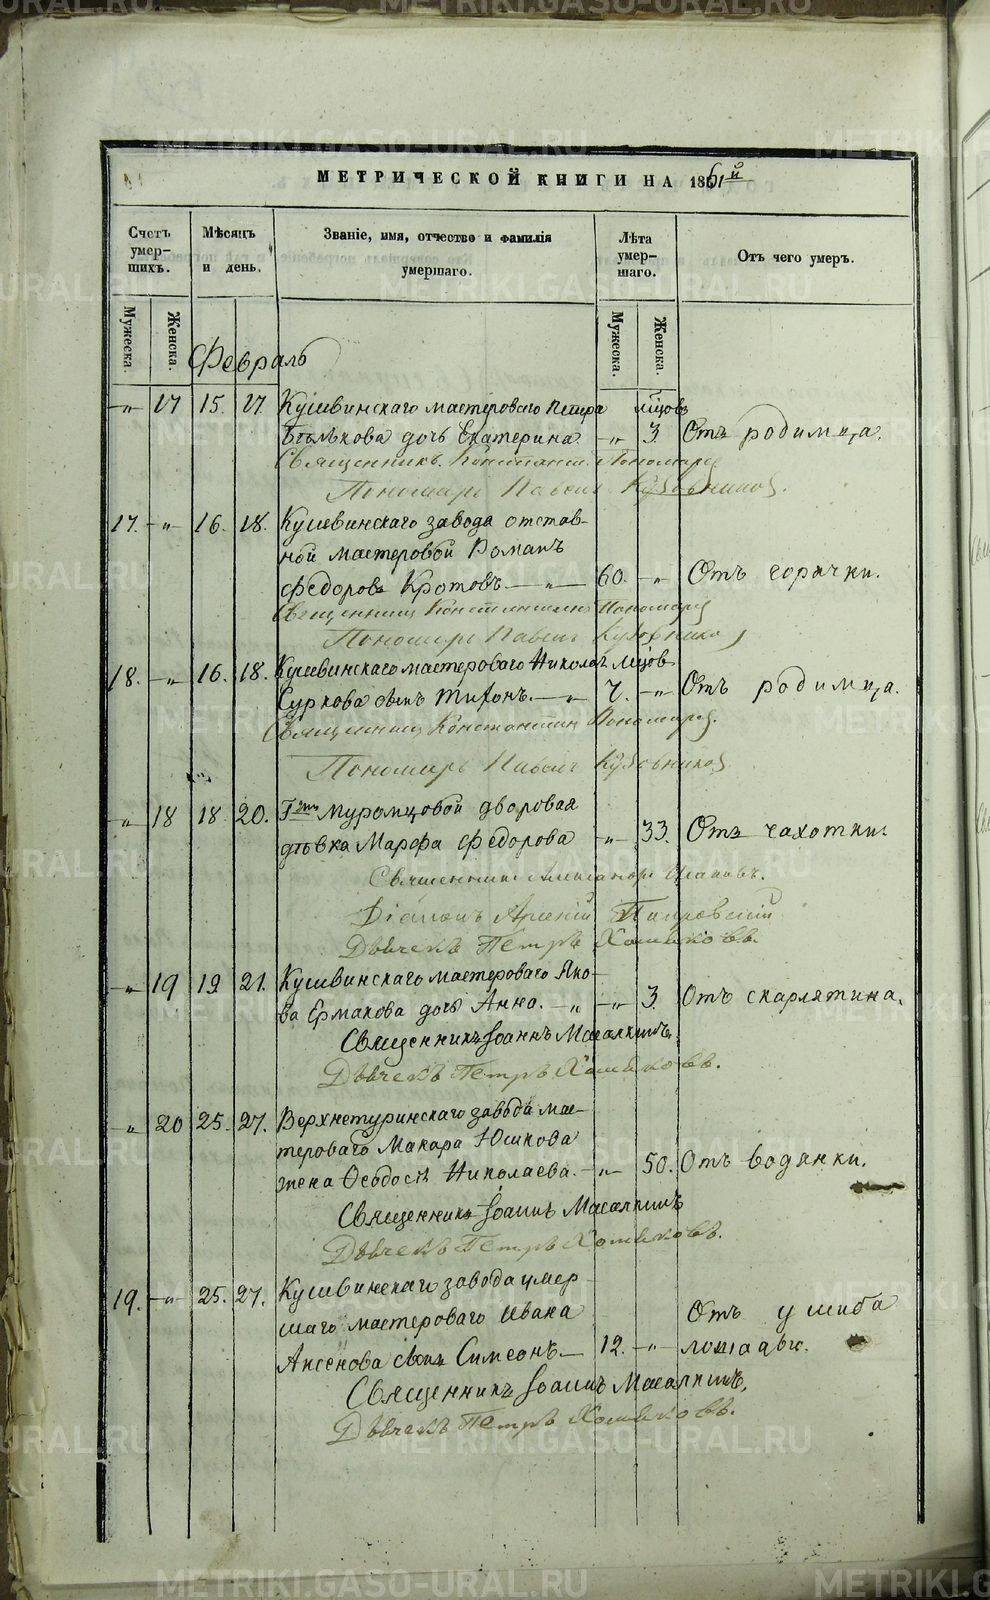 МЕТРИЧЕСКОЙ КНИГИ НА 1861й
Счетъ умер-шихъ.
Мѣсяцъ и день.
Званіе, имя, отчество и фамилія умершаго.
Лѣта умер-шаго.
Отъ чего умеръ.
Мужеска.
Женска.
Мужеска.
Женска.
Февраль
-„- 17 15. 17. Кушвинскаго мастероваго Петра мѣсцовъ
Бѣлькова дочь Екатерина -„- 3. Отъ родимца.
Священникъ Констант. Пономаре
Пономарь Павелъ Кубовниковъ.
17. -„- 16. 18. Кушвинскаго завода отстав-
ной мастеровой Романъ
Федоровъ Кротовъ -„- 60. -„- Отъ горячки.
Священникъ Константинъ Пономаре
Пономарь Павелъ Кубовников
18. -„- 16. 18. Кушвинскаго мастероваго Николая мѣсцов
Суркова сынъ Тихонъ. -„- 7. -„- Отъ родимца.
Священникъ Константинъ Пономарев.
Пономарь Павелъ Кубовников
-„- 18 18 20. Гжи Муромцовой дворовая
дѣвка Марфа Федорова -„- 33. Отъ чахотки.
Священникъ Александръ
Діаконъ Арсеній
Дьячекъ Петръ Хомяковъ.
-„- 19 19 21. Кушвинскаго мастероваго Яко-
ва Ермакова дочь Анна. -„- -„- 3. Отъ скарлятина.
Священникъ Іоаннъ Масалкинъ.
Дьячекъ Петръ Хомяковъ.
-„- 20 25. 27. Верхнетуринскаго завода мас-
тероваго Макара Юшкова
жена Ѳеодосія Николаева. -„- 50. Отъ водянки.
Священникъ Іоаннъ Масалкинъ
Дьячекъ Петръ Хомяковъ.
19. -„- 25. 27. Кушвинскаго завода умер-
шаго мастероваго Ивана Отъ ушиба
Аксенова сынъ Симеонъ. 12. -„- лошадью.
Священникъ Іоаннъ Масалкинъ.
Дьячекъ Петръ Хомяковъ.
METRIKI.GASO-URAL.RU